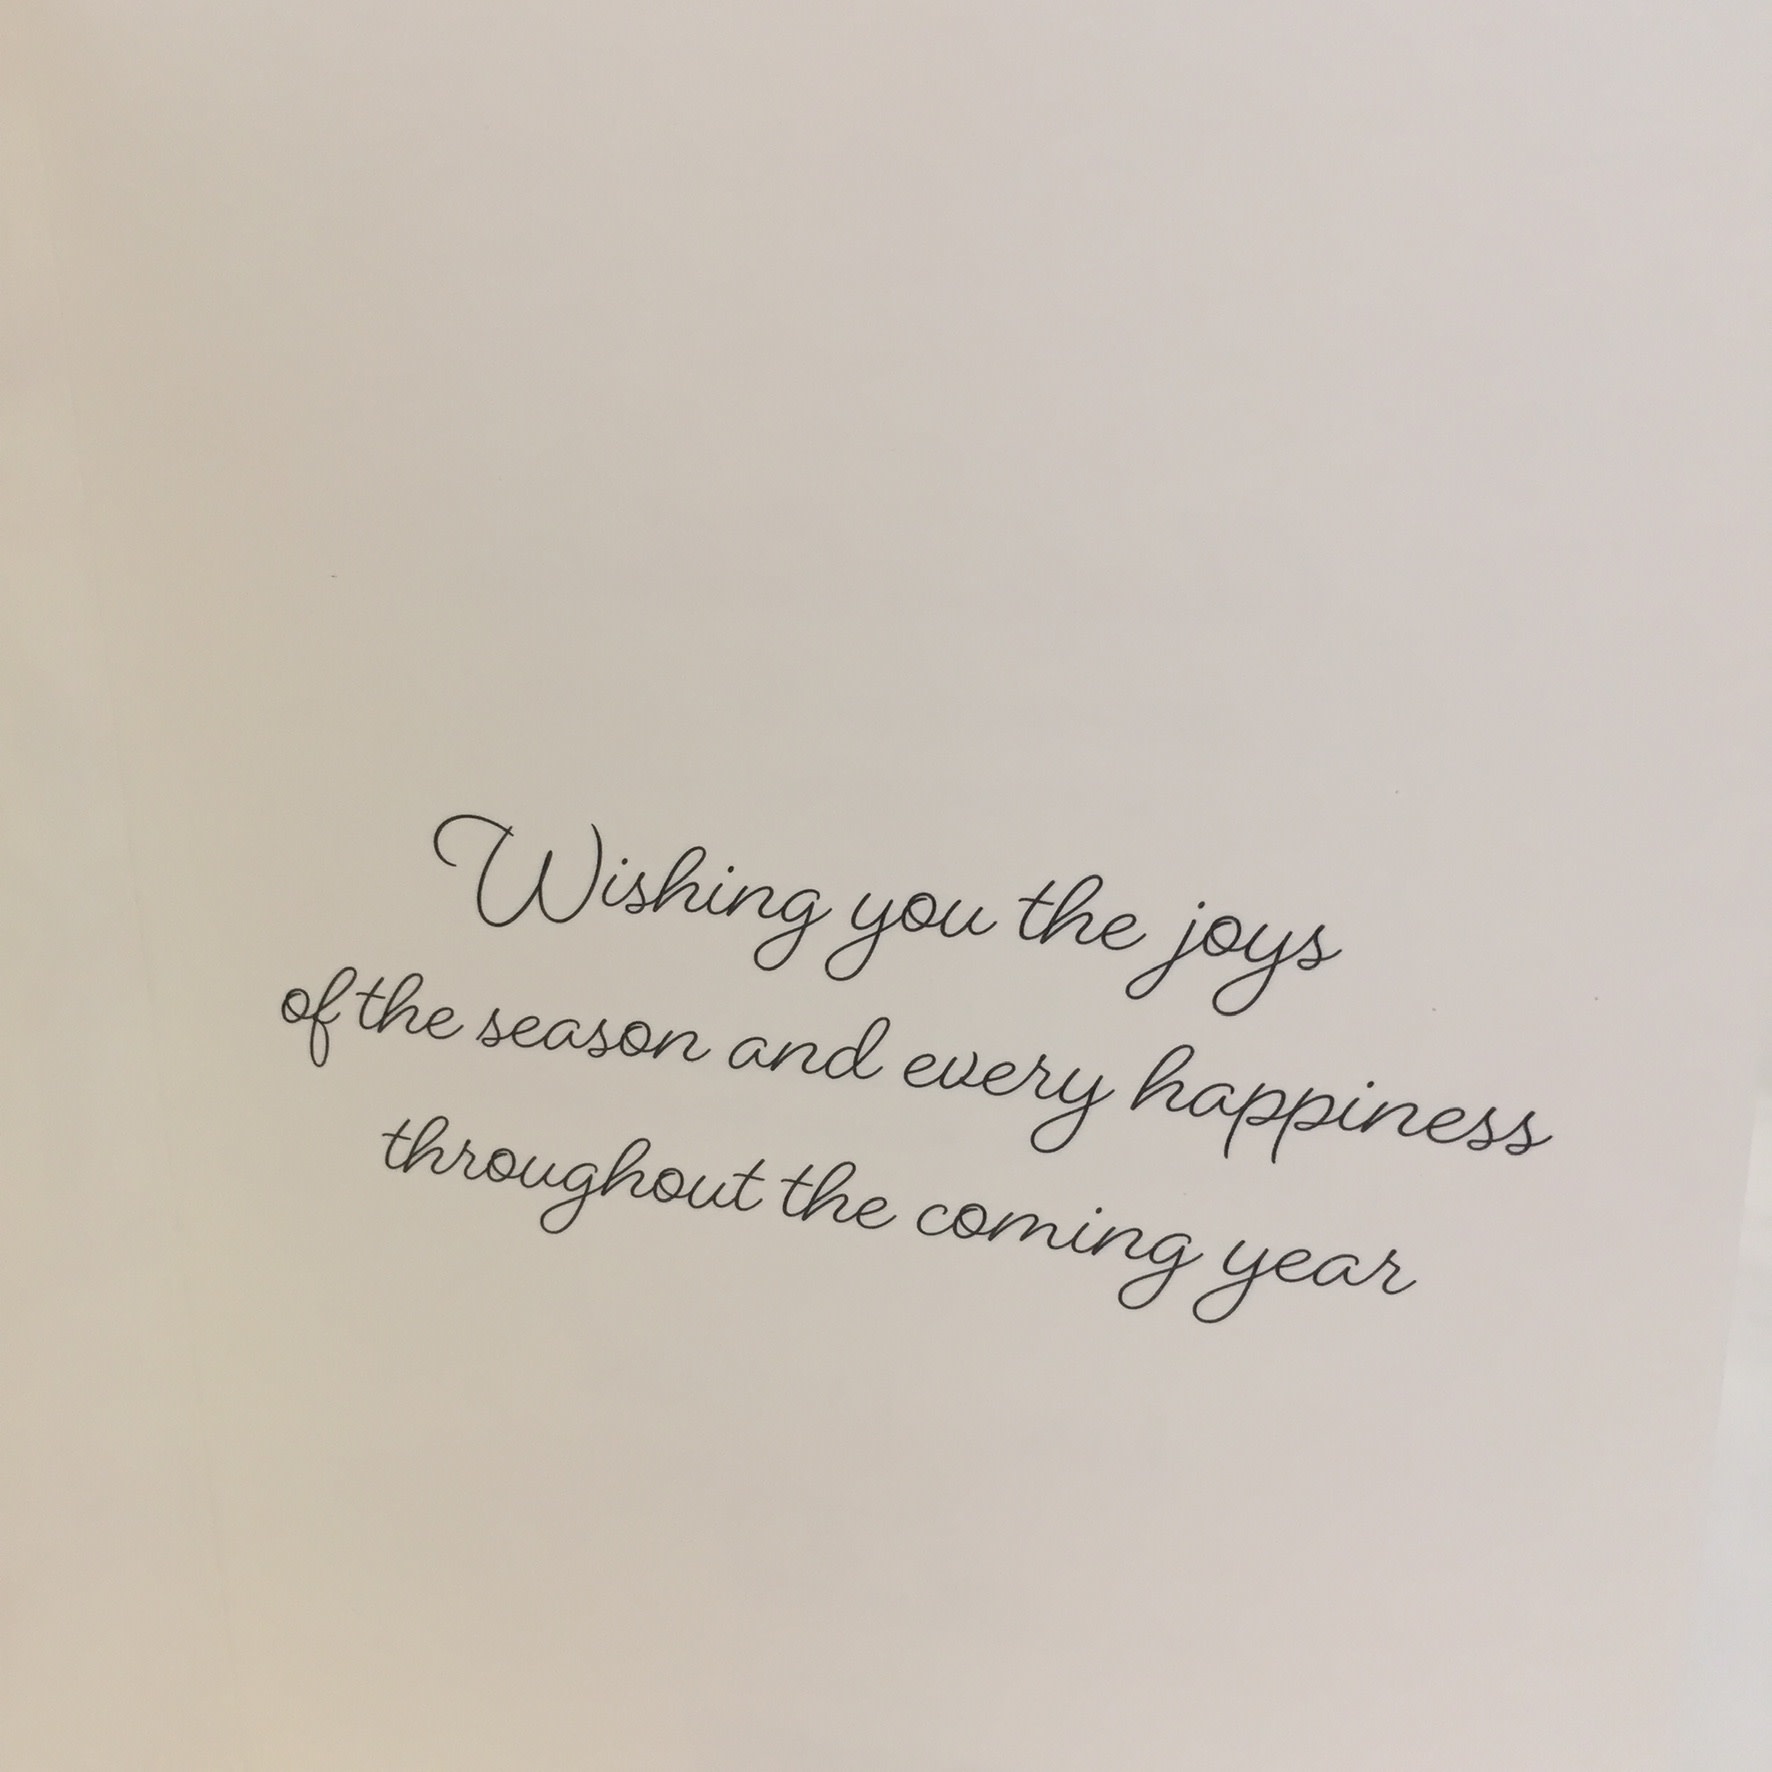 Wishing you the joys
of the season and every happiness
throughout the coming year